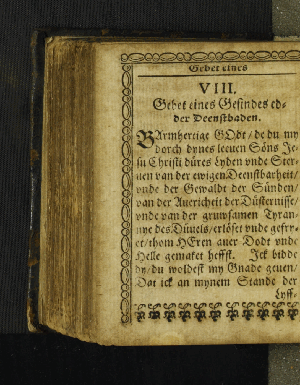 Gebet eines
VIII.
Gebet eines Gesindes ed-
der Deenstbaden.
BArmhertige GOdt / de du my
dorch dynes leeuen Söns Je-
su Christi düres Lyden vnde Ster-
uen van der ewigen Deenstbarheit /
vnde der Gewaldt der Sünden /
van der Auericheit der Düsternisse /
vnde van der gruwsamen Tyran-
nye des Düuels / erlöset vnde gefry-
et / thom HEren auer Dodt vnde
Helle gemaket heffst. Ick bidde
dy / du woldest my Gnade geuen /
Dat ick an mynem Stande der
Lyff-